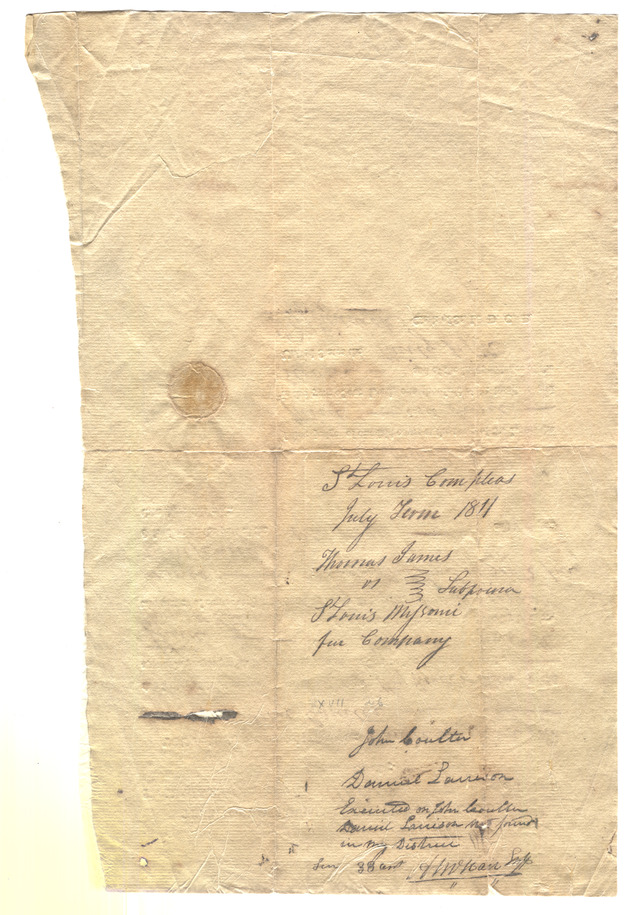 St Louis Com pleas
July Term 1811
Thomas James
vs Subpoena
St Louis Missouri
fur Company
John Coulter
Daniel Larrison
Executed on John Coulter
Daniel Larrison not found
in my District